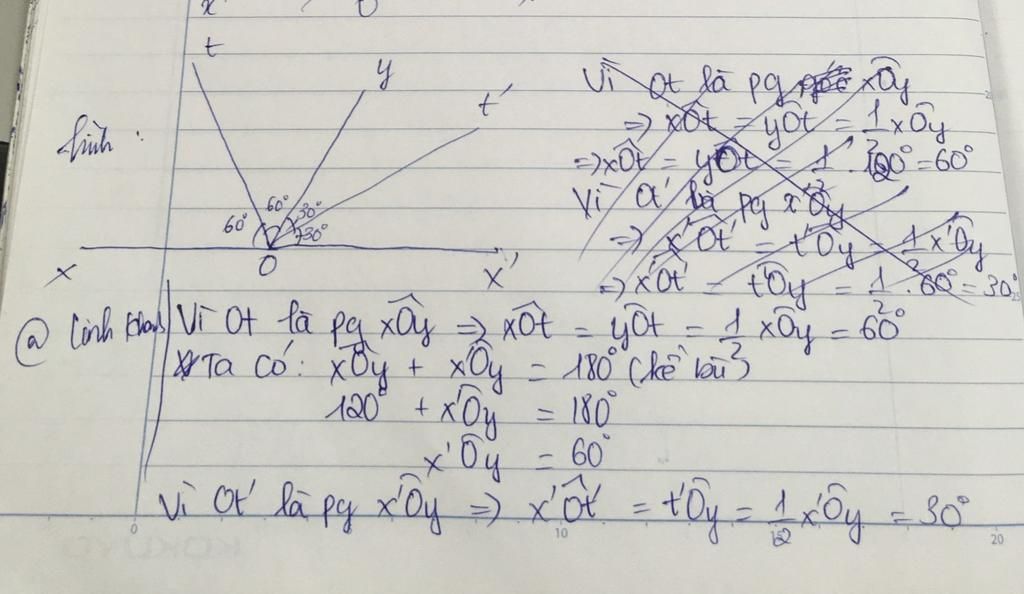 x' O
t
y
t'
hình :
60° 60° 30° 30°
x O x'
Vì Ot là pg xÔy
=> xÔt = yÔt = 1/2 xÔy
=> xÔt = yÔt = 1/2 . 120° = 60°
Vì Ot' là pg x'Ôy
=> x'Ôt' = t'Ôy = 1/2 x'Ôy
=> x'Ôt' = t'Ôy = 1/2 . 60° = 30°
@ Cách khác Vì Ot là pg xÔy => xÔt = yÔt = 1/2 xÔy = 60°
Ta có: xÔy + x'Ôy = 180° (kề bù)
120° + x'Ôy = 180°
x'Ôy = 60°
Vì Ot' là pg x'Ôy => x'Ôt' = t'Ôy = 1/2 x'Ôy = 30°
0 10 15 20
KOKUYO